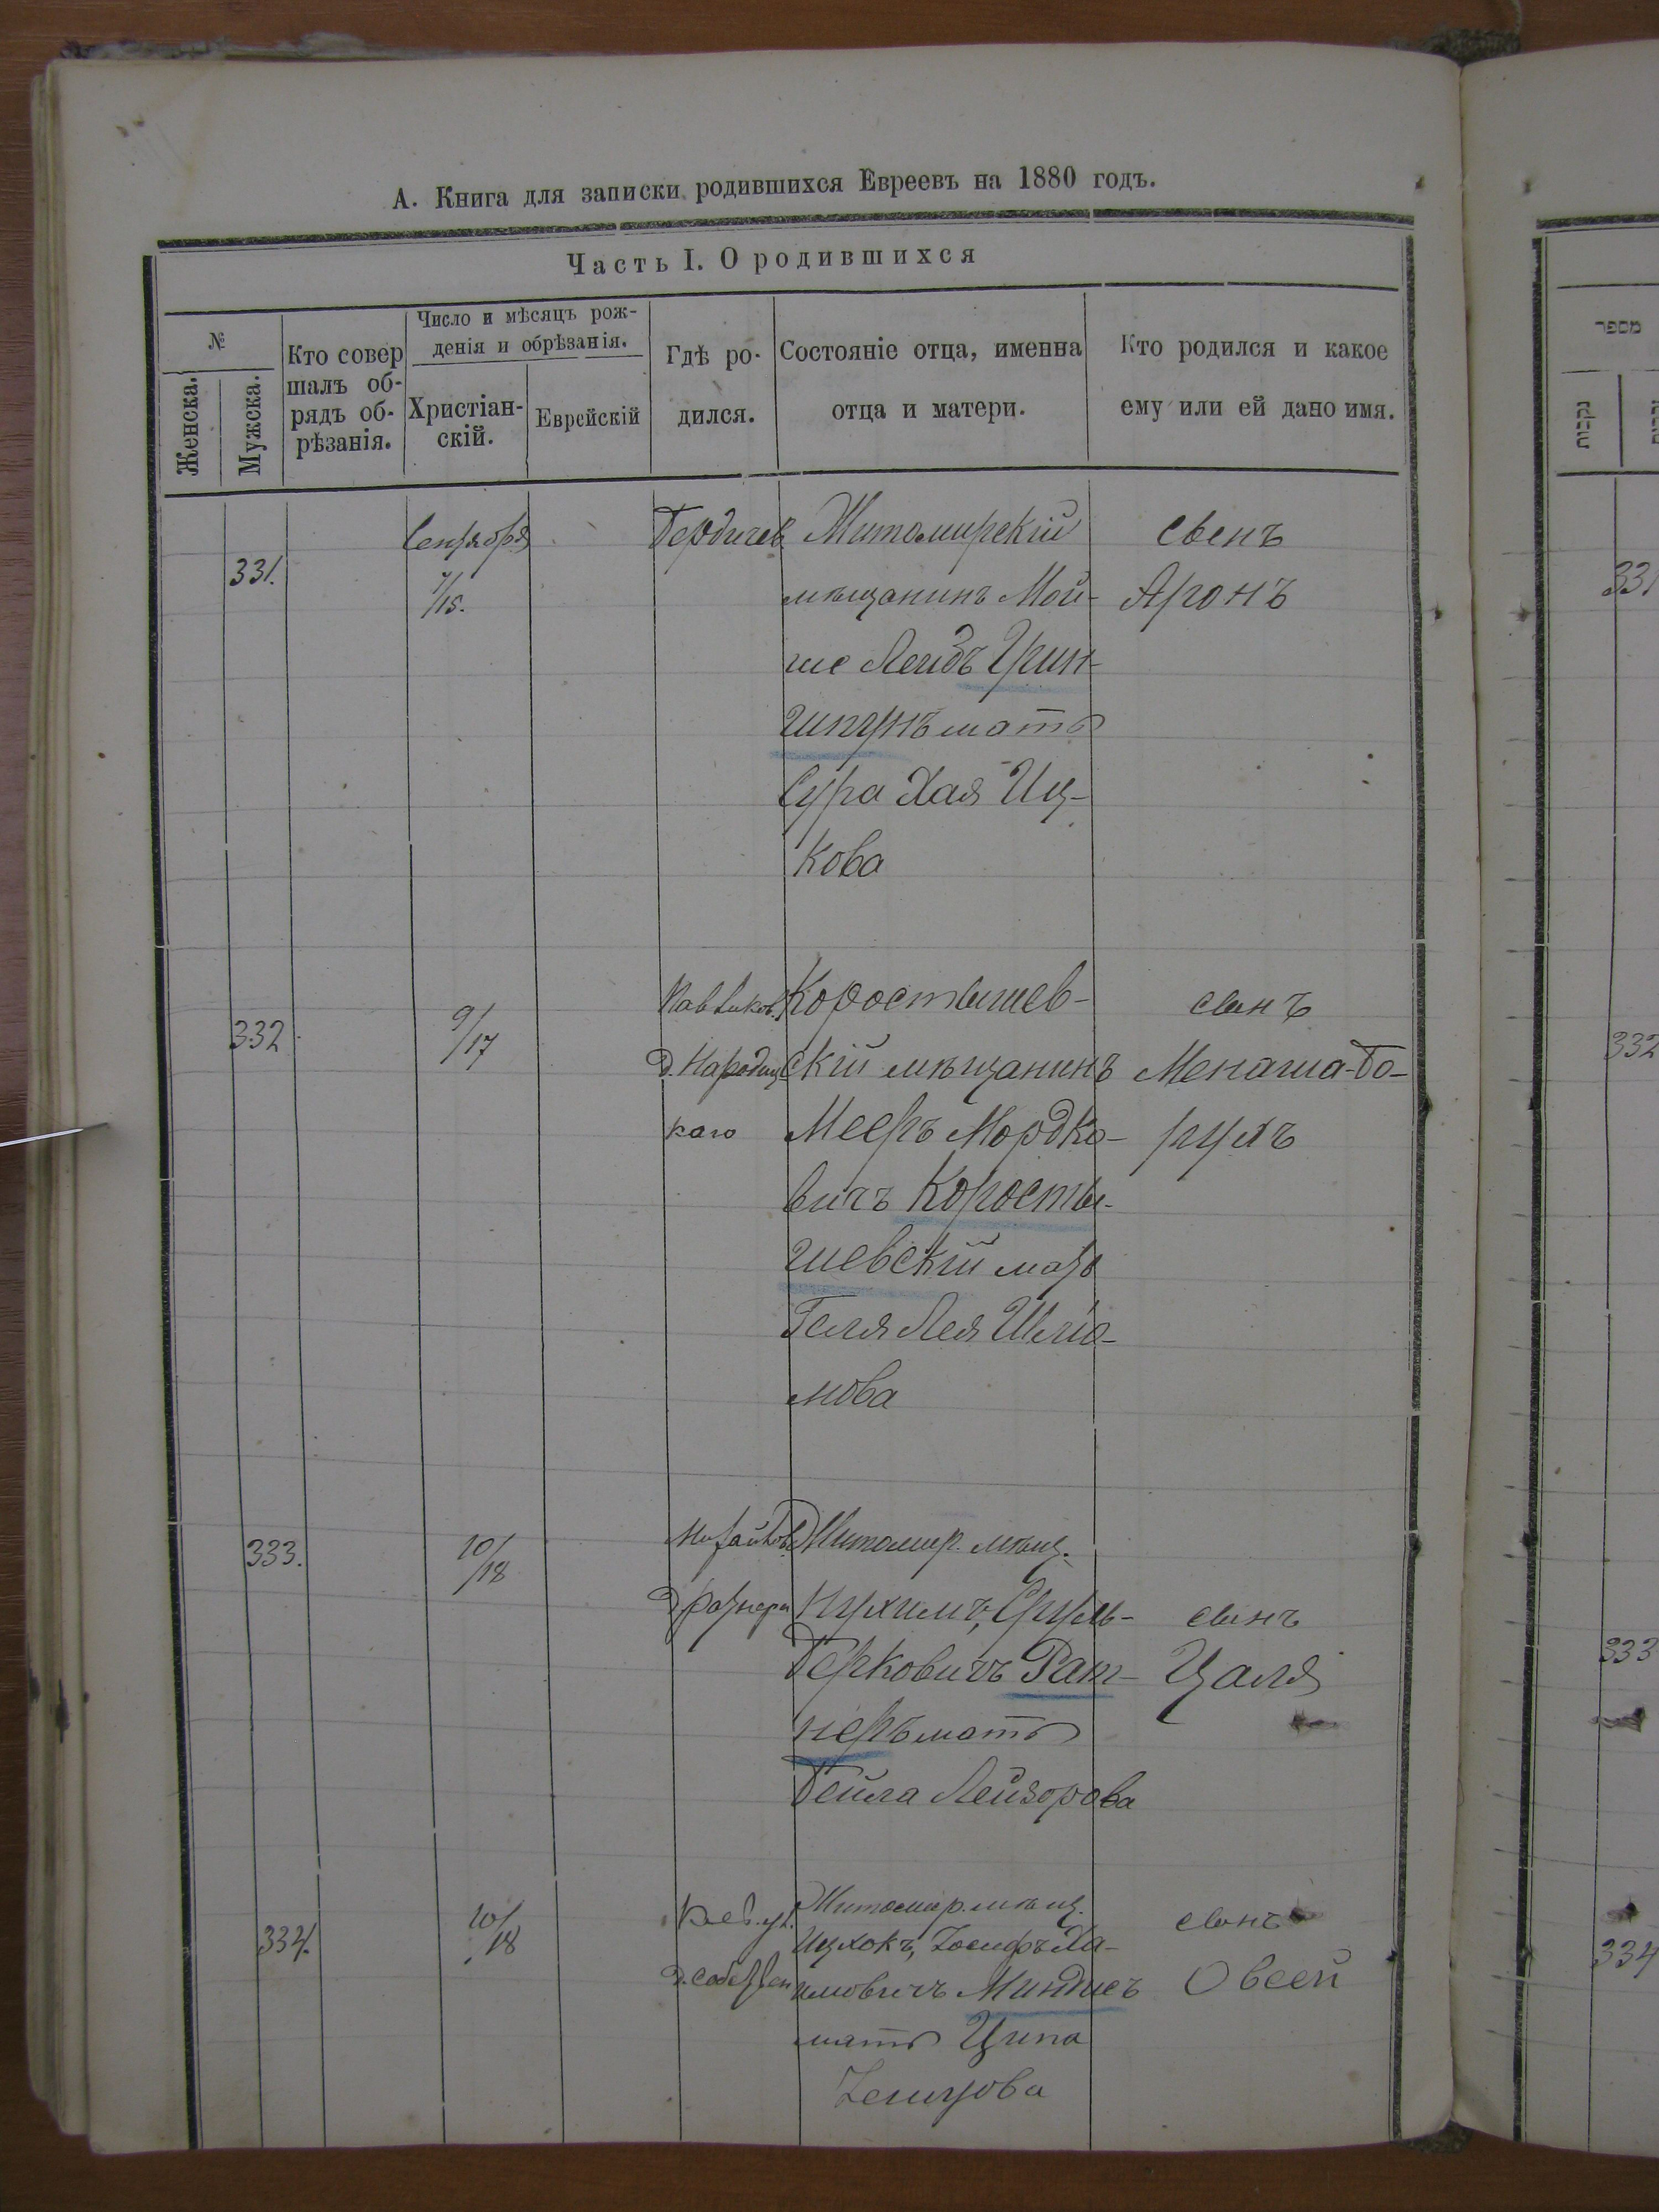 А. Книга для записки родившихся Евреевъ на 1880 годъ.
Часть I. О родившихся
№
Женска.
Мужска.
Кто совер
шалъ об-
рядъ об-
рѣзанія.
Число и мѣсяцъ рож-
денія и обрѣзанія.
Христіан-
скій.
Еврейскій
Гдѣ ро-
дился.
Состояніе отца, именна
отца и матери.
Кто родился и какое
ему или ей дано имя.
331.
Сентября
7/15.
Бердичев
Житомирскій
мѣщанинъ Мой-
ше Лейбъ Грин-
шпунъ мать
Сура Хая Иц-
кова
сынъ
Аронъ
332
9/17
д. Народиц
каго
Коростышев-
скій мѣщанинъ
Мееръ Мордко-
вичъ Коросты-
шевскій мать
Геля Лея Шліо-
мова
сынъ
Менаша-Бо-
рухъ
333.
10/18
д. Ратнера
Житомир. мѣщ.
Нухимъ, Сруль-
Берковичъ Рат-
неръ мать
Бейла Лейзорова
сынъ
Цаля
334.
10/18
Житомир. мѣщ.
Ицхокъ, Іосифъ Ха-
имовичъ Миндисъ
мать Ципа
сынъ
Овсей
מספר
נקבות
331
332
333
334